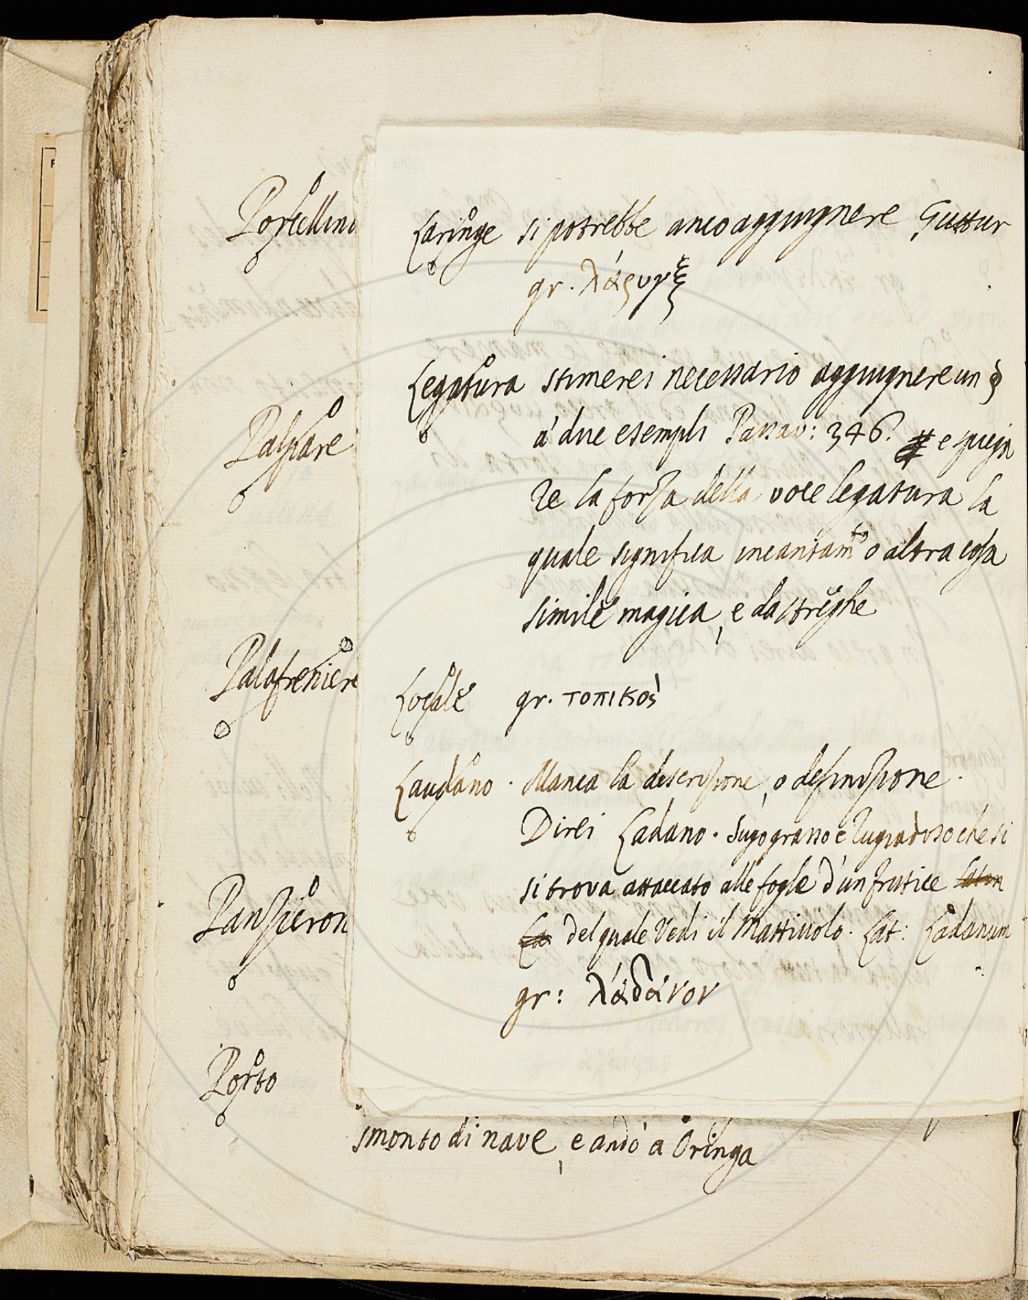 Porcellino
Palpare
Palafreniere
Panzieron
Porto
Laringe si potrebbe anco aggiugnere Guttur
gr. λάρυγξ
Legatura stimerei necessario aggiugnere un §
a' due esempli Passav: 346. e spiega
re la forza della voce legatura la
quale significa incantam.to o altra cosa
simile magica, e da streghe
Locale gr. τοπικὸς
Laudano. Manca la descrizione, o definizione.
Direi Ladano. Sugo grasso e rugiadoso che si
si trova attaccato alle foglie d'un frutice
del quale Vedi il Mattiuolo. Lat: Ladanum
gr: λάδανον
smontò di nave, e andò a Oringa